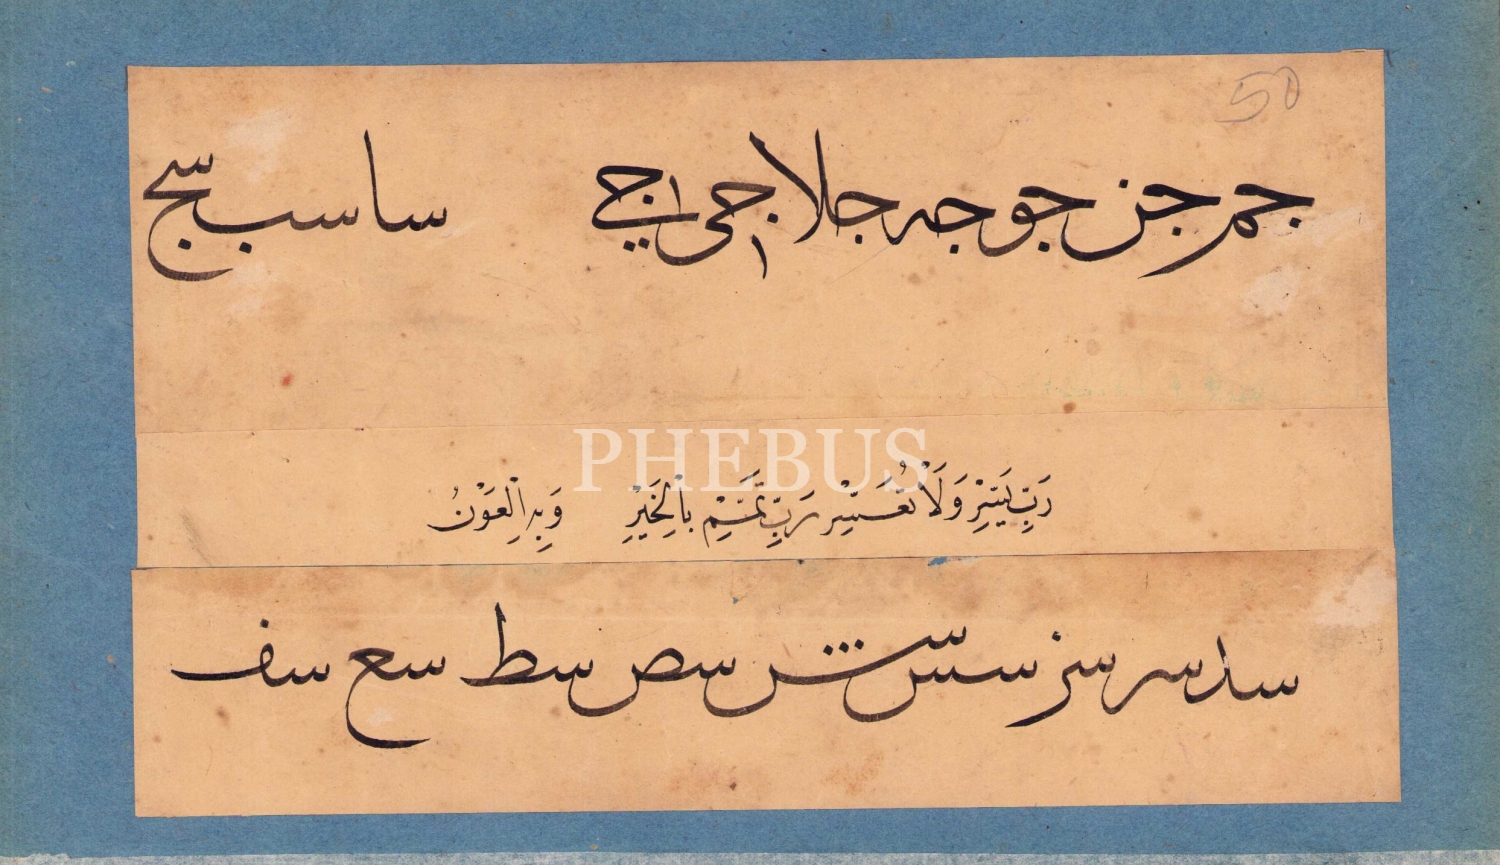 50
جم جن جو جه جلا جى جے سا سب سج
PHEBUS
رَبِّ يَسِّرْ وَلَا تُعَسِّرْ رَبِّ تَمِّمْ بِالْخَيْرِ وَبِهِ الْعَوْنُ
سد سر سز سس سش سص سط سع سف